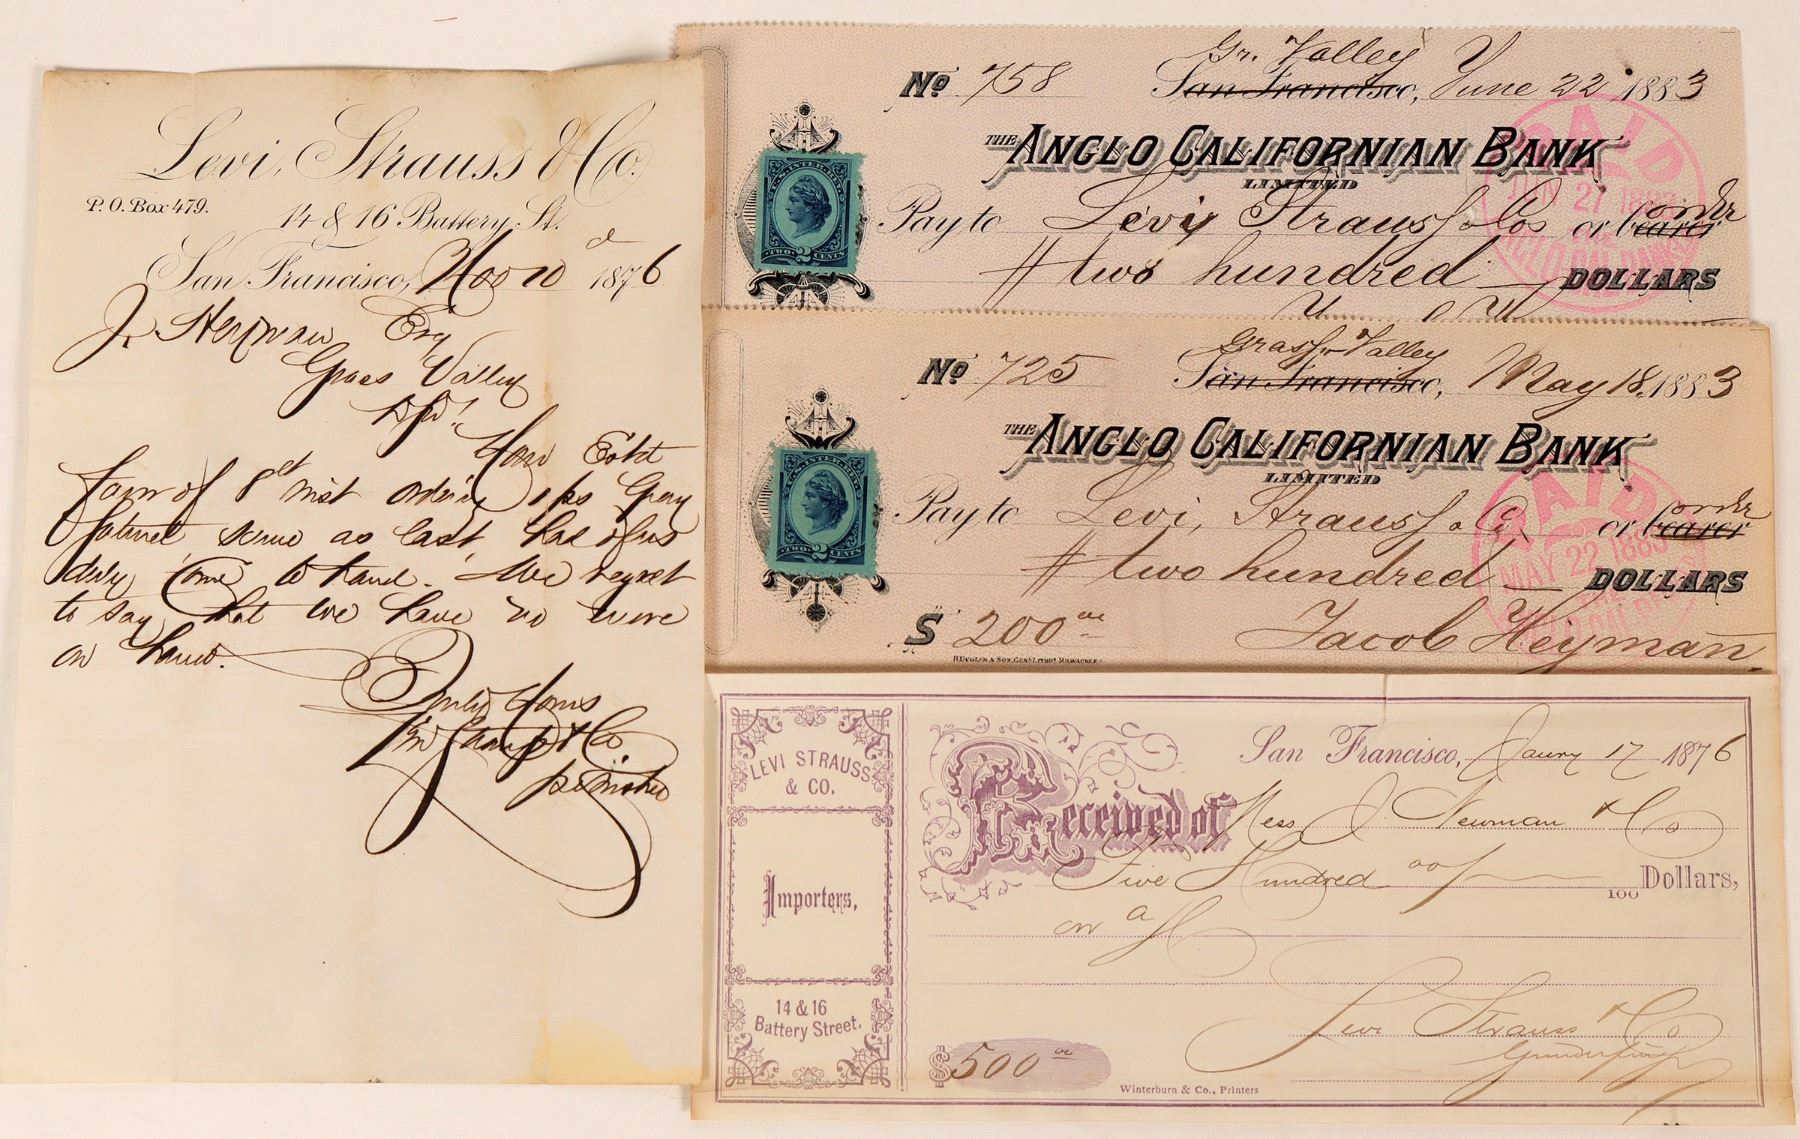 Levi, Strauss & Co.
P.O. Box 479.
14 & 16 Battery St.
San Francisco, Nov 10 1876
J. Heyman Esq
Grass Valley
Your
favor of 8th inst ordering 1 ps Gray
same as last has thus
duly come to hand. We regret
to say that we have no more
on hand.
Yours
& Co
No 758 San Francisco, Gr. Valley June 22 1883
THE ANGLO CALIFORNIAN BANK
LIMITED
Pay to Levi Strauss & Cos or bearer order
# two hundred DOLLARS
U.S. INTER. REV.
TWO 2 CENTS
PAID
JUN 27 1883
THE
ANGLO CAL. BANK
No 725 San Francisco, Grass Valley May 18, 1883
THE ANGLO CALIFORNIAN BANK
LIMITED
Pay to Levi, Strauss & Co or bearer order
# two hundred DOLLARS
$ 200 00 Jacob Heyman
U.S. INTER. REV.
TWO 2 CENTS
PAID
MAY 22 1883
THE
H. Upson & Son, Genl Litho. Milwaukee
LEVI STRAUSS
& CO.
Importers,
14 & 16
Battery Street.
San Francisco, Jany 17 1876
Received of Mess J. Newman & Co
Five Hundred 00/100 Dollars,
on a/c
Levi Strauss & Co
$ 500 00
Winterburn & Co., Printers